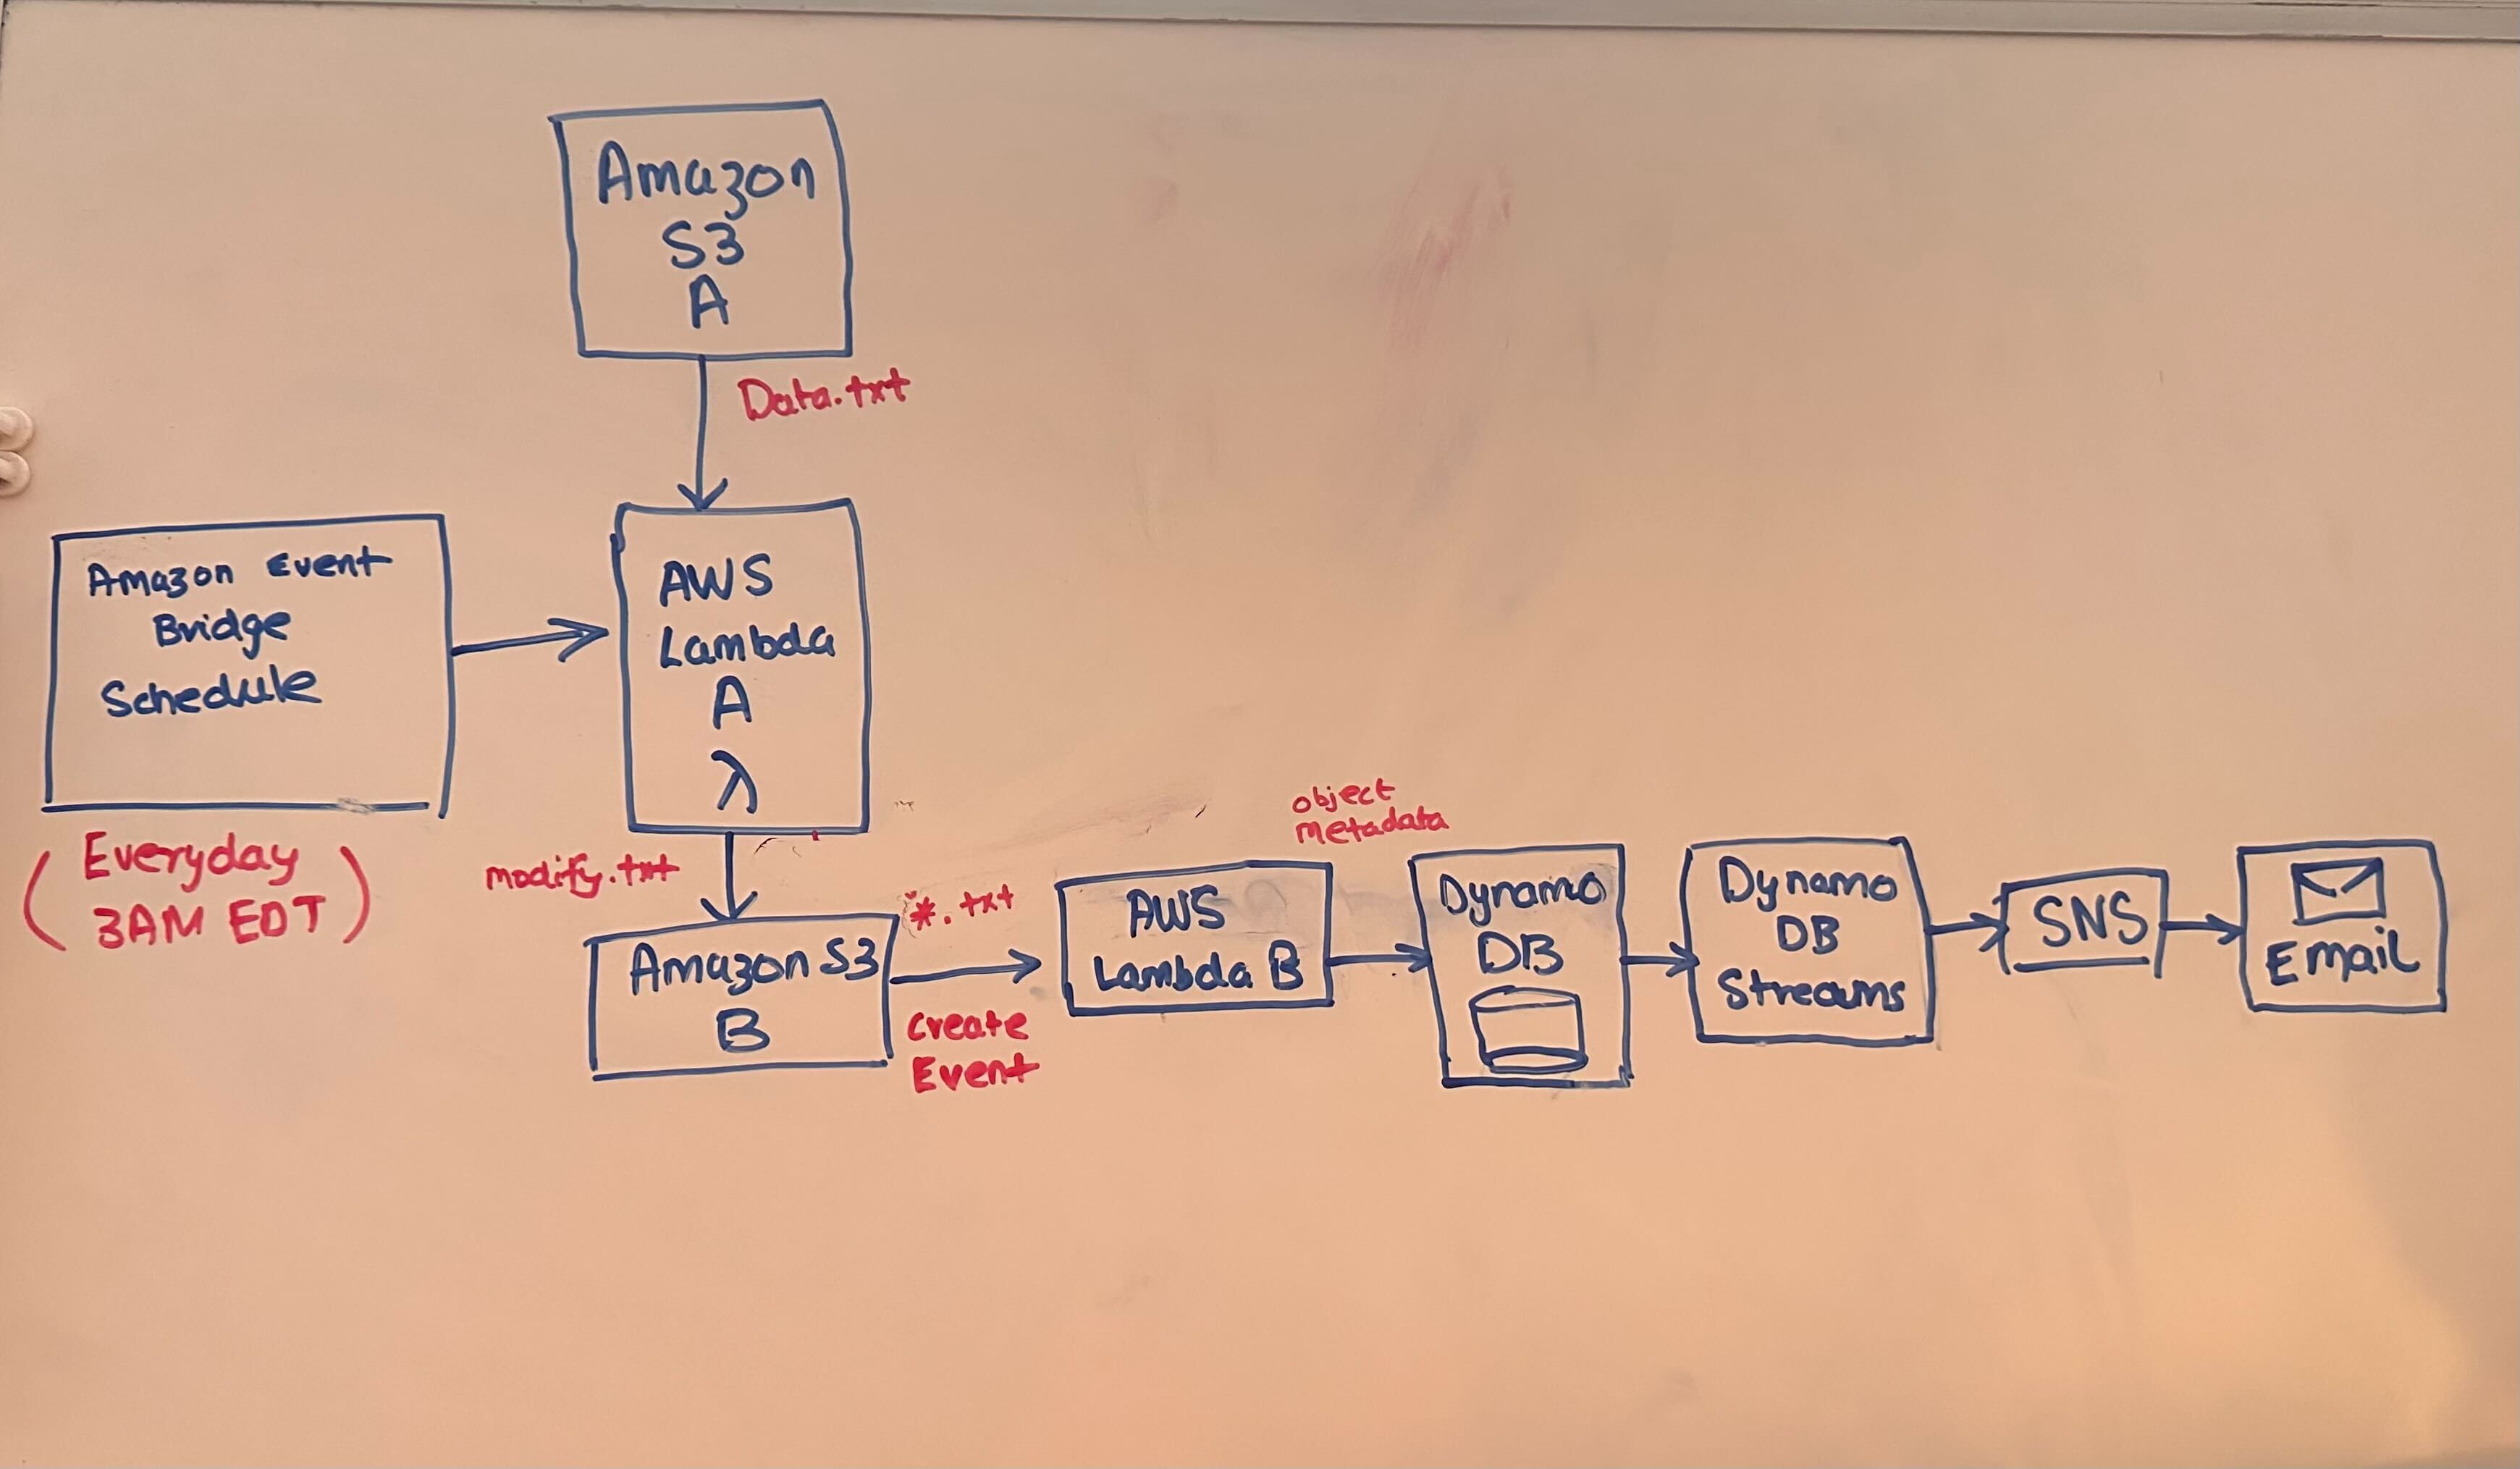 Amazon
S3
A
Data.txt
Amazon Event
Bridge
Schedule
(Everyday
3AM EDT)
AWS
Lambda
A
λ
modify.txt
Amazon S3
B
*.txt
Create
Event
AWS
Lambda B
object
metadata
Dynamo
DB
Dynamo
DB
Streams
SNS
Email